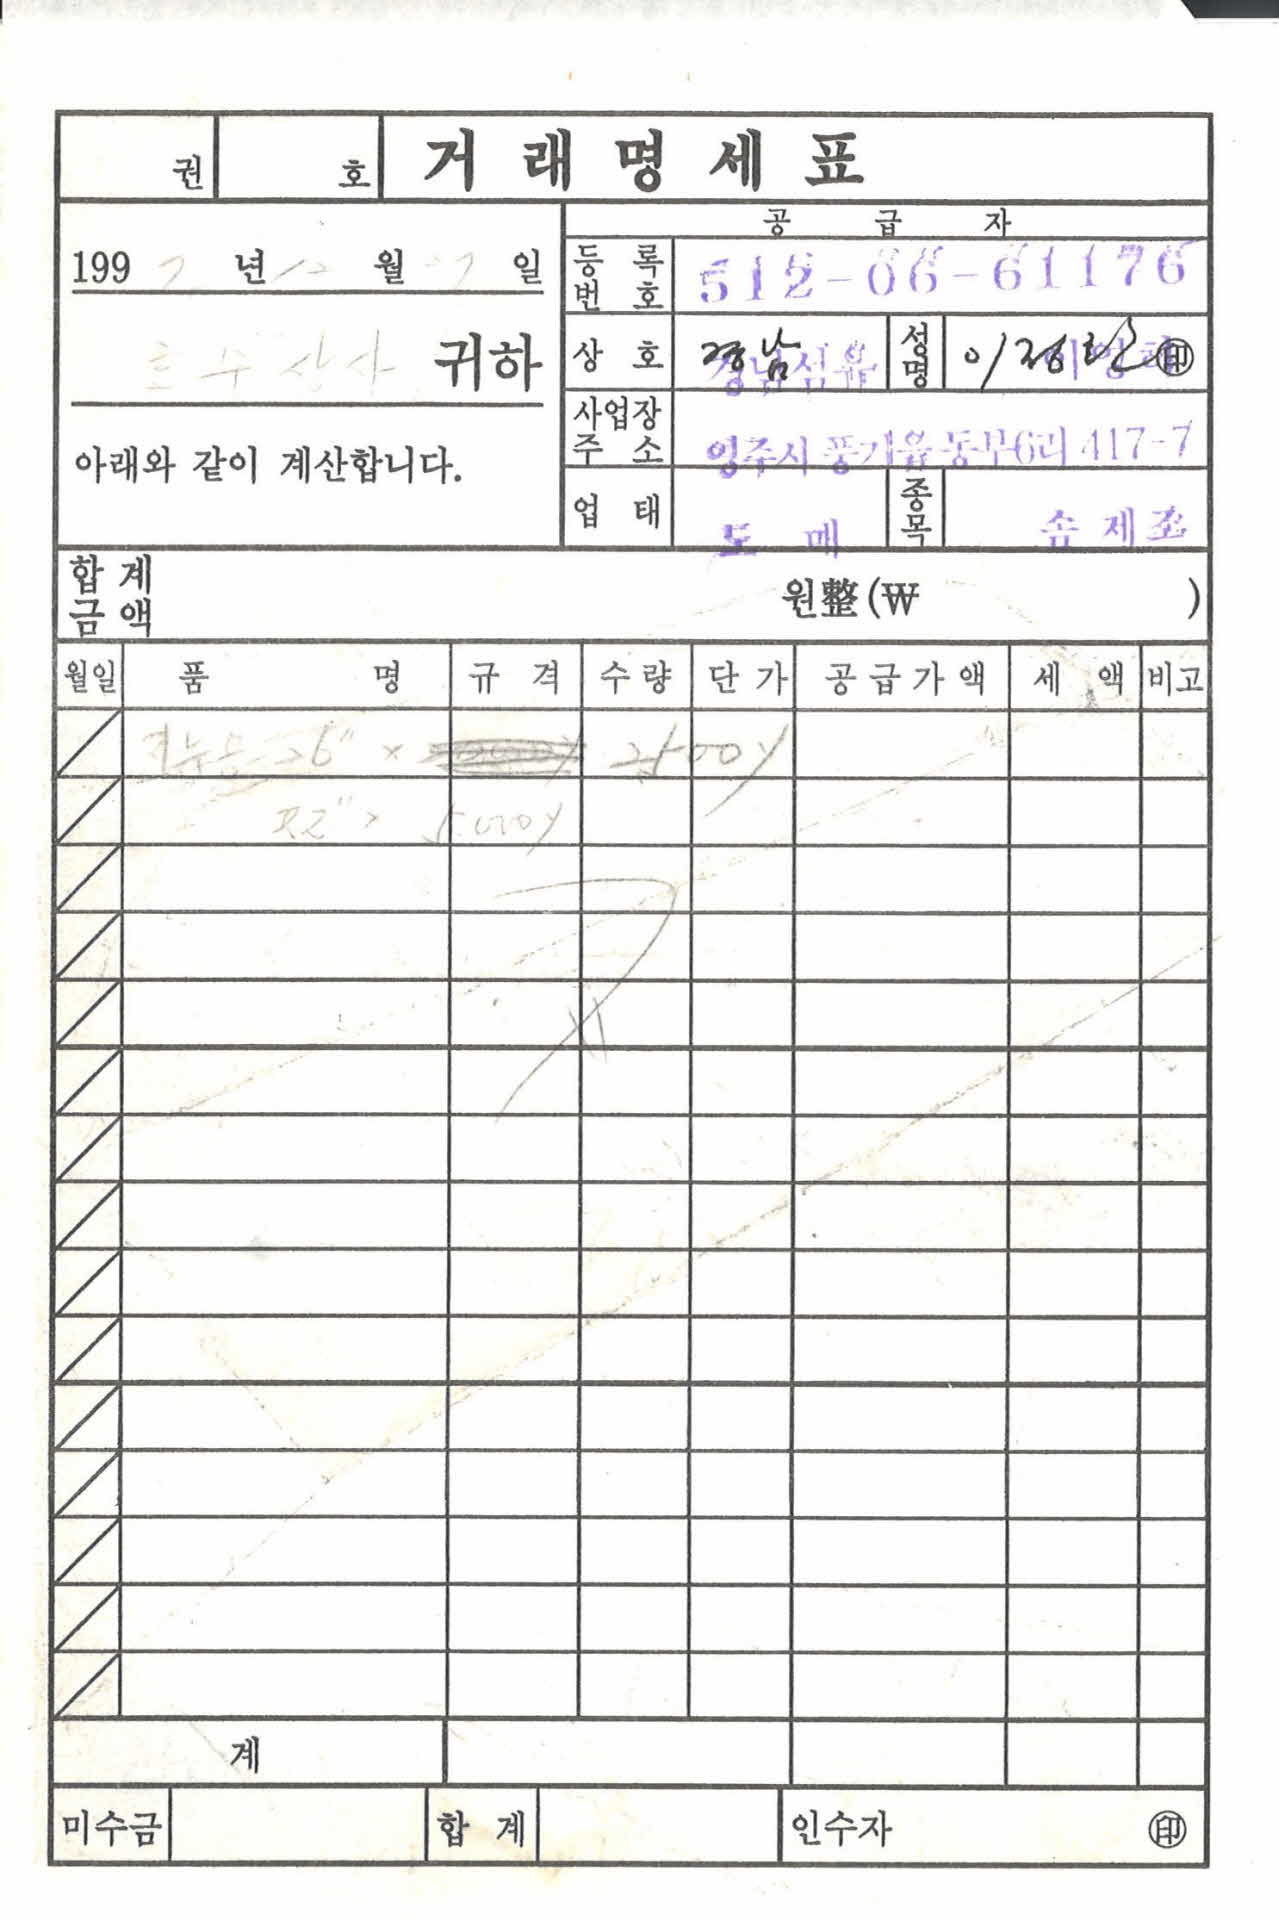 권 호 거래명세표
공급자
1997년 12월 7일
등록번호 512-06-61176
호수상사 귀하
상호 경남섬유 경남 성명 이정란 印
아래와 같이 계산합니다.
사업장주소 영주시 풍기읍 동부6리 417-7
업태 도매 종목 솜제조
합계금액 원整(₩ )
월일 품명 규격 수량 단가 공급가액 세액 비고
26" × 2500y
5000y
계
미수금 합계 인수자 印